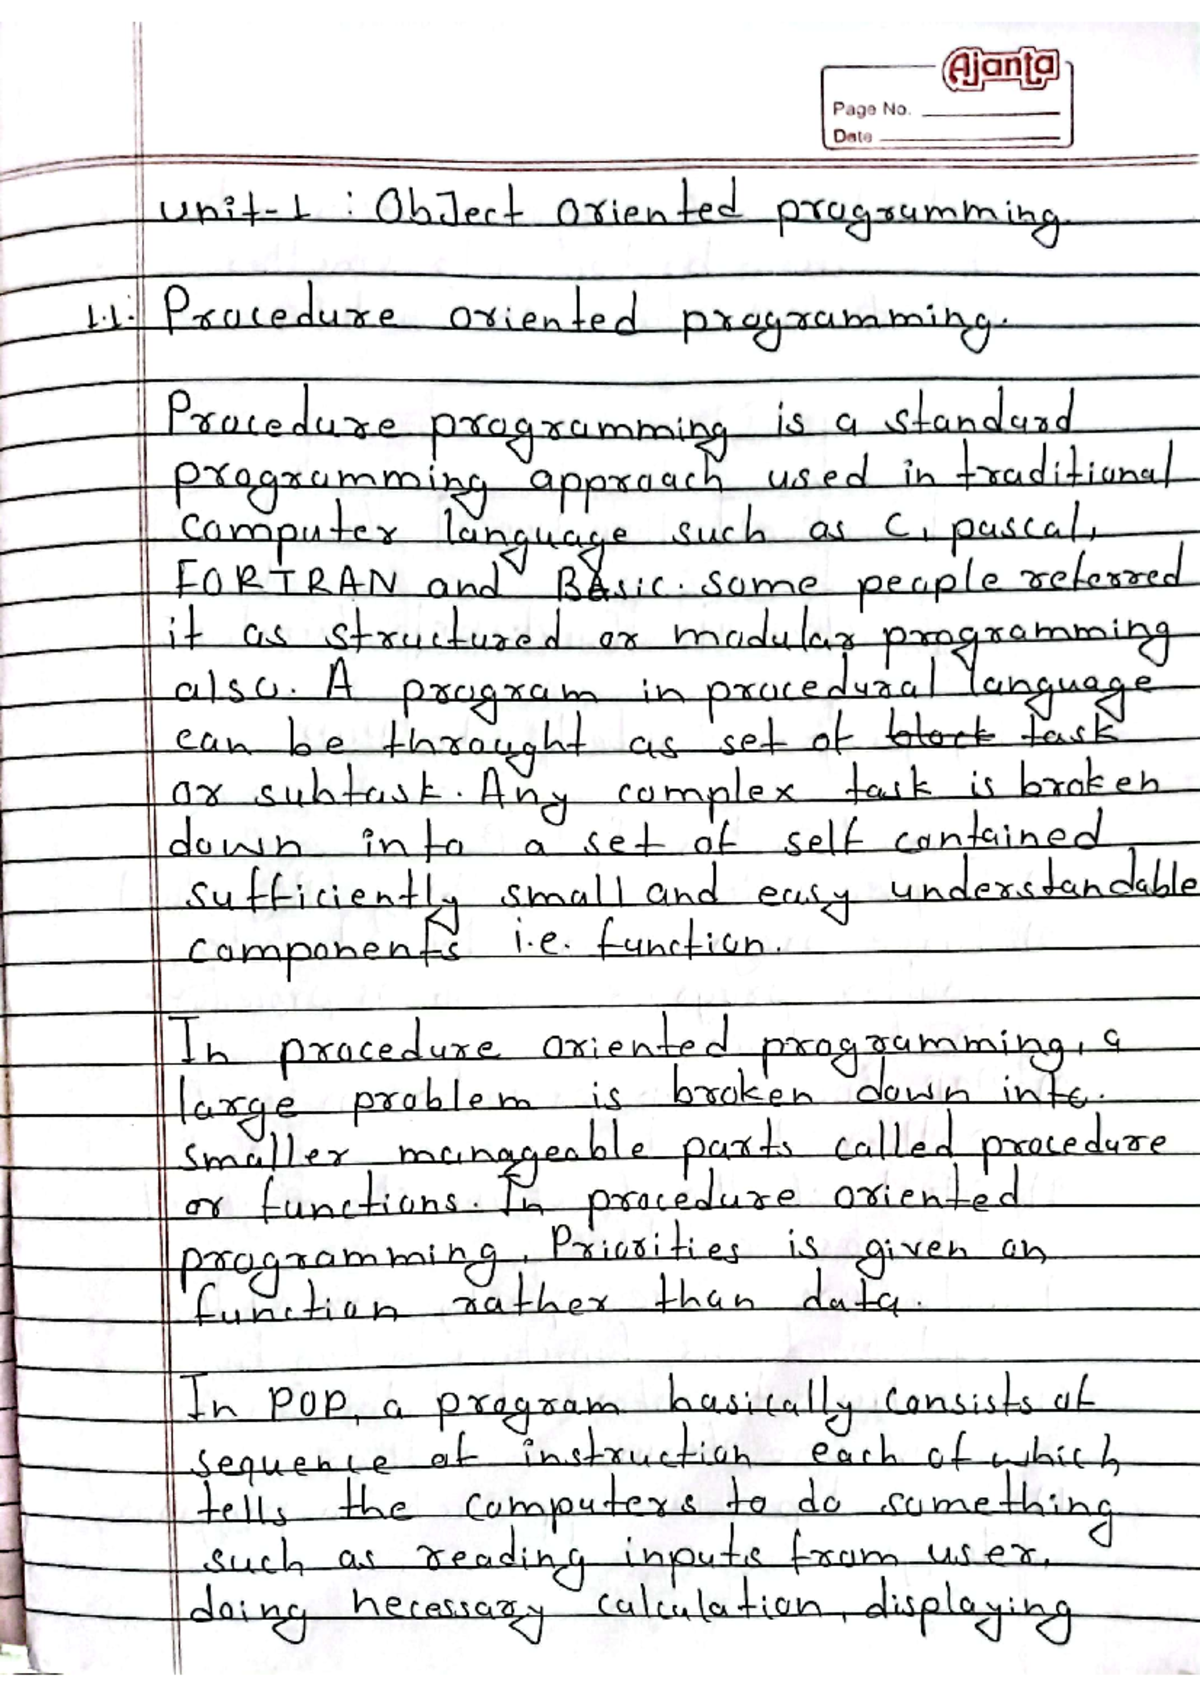 Ajanta
Page No.
Date
Unit-1 : Object oriented programming.
1.1. Procedure oriented programming.
Procedure programming is a standard
programming approach used in traditional
computer language such as C, pascal,
FORTRAN and BAsic. Some people referred
it as structured or modular programming
also. A program in procedural language
can be throught as set of block task
or subtask. Any complex task is broken
down into a set of self contained
sufficiently small and easy understandable
components i.e. function.
In procedure oriented programming, a
large problem is broken down into.
smaller manageable parts called procedure
or functions. In procedure oriented
programming, Priorities is given on
function rather than data.
In POP, a program basically consists of
sequence of instruction each of which
tells the computers to do something
such as reading inputs from user,
doing necessary calculation, displaying